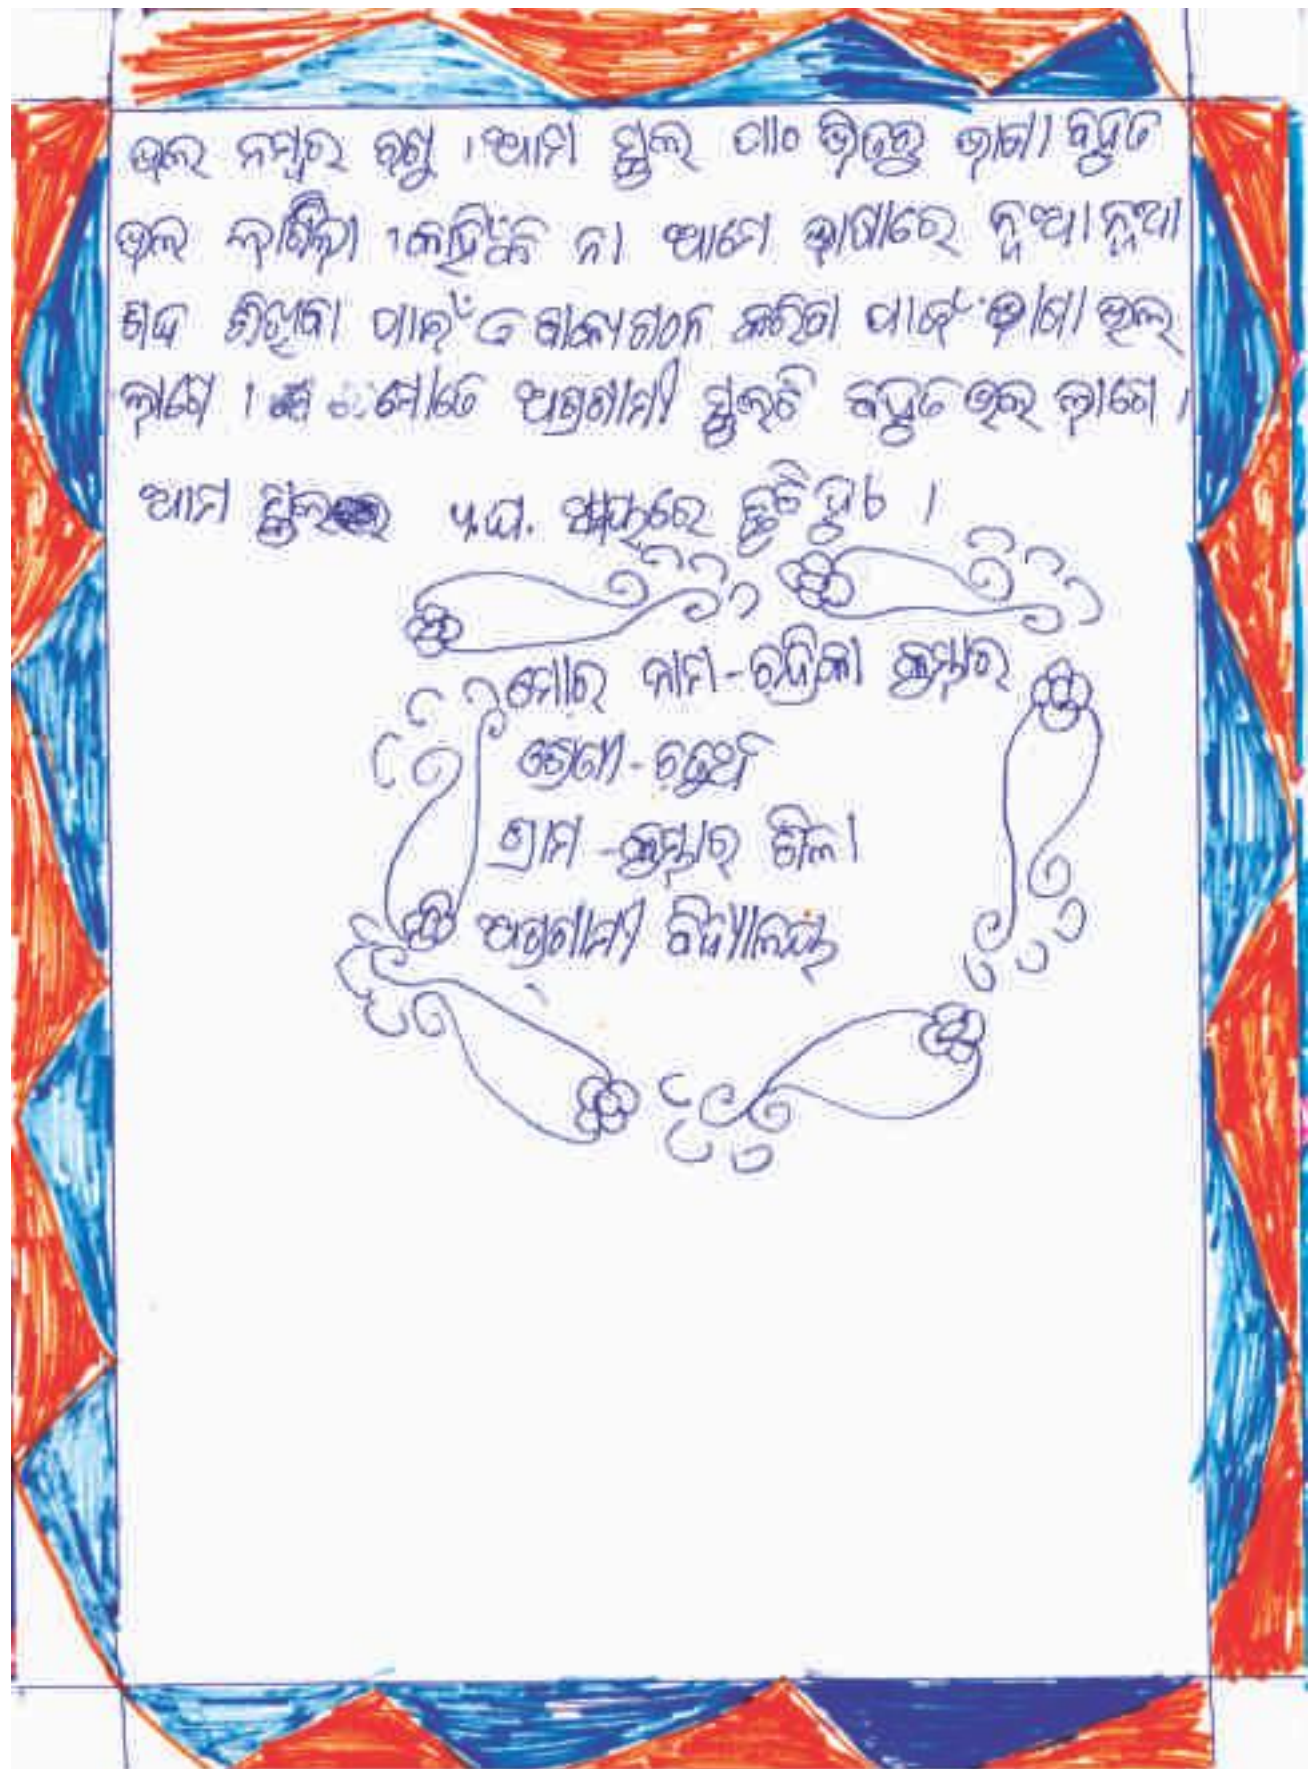 ଭଲ ନମ୍ବର ରଖୁ । ଆମ ସ୍କୁଲ ପାଠ ଭିତରୁ ଭାଷା ବହୁତ
ଭଲ ଲାଗିଲା । କାହିଁକି ନା ଆମେ ଭାଷାରେ ନୂଆ ନୂଆ
ଶବ୍ଦ ଶିଖିବା ପାଇଁ ଓ ବାକ୍ୟ ଗଠନ କରିବା ପାଇଁ ଭାଷା ଭଲ
ଲାଗେ । ମୋତେ ଅଗ୍ରଗାମୀ ସ୍କୁଲଟି ବହୁତ ଭଲ ଲାଗେ ।
ଆମ ସ୍କୁଲ ୪.ଘ. ସମୟରେ ଛୁଟି ହୁଏ ।
ମୋର ନାମ - ଚନ୍ଦ୍ରିକା କୁମ୍ଭାର
ଶ୍ରେଣୀ - ଚତୁର୍ଥ
ଗ୍ରାମ - କୁମ୍ଭାର ଶିଳା
ଅଗ୍ରଗାମୀ ବିଦ୍ୟାଳୟ